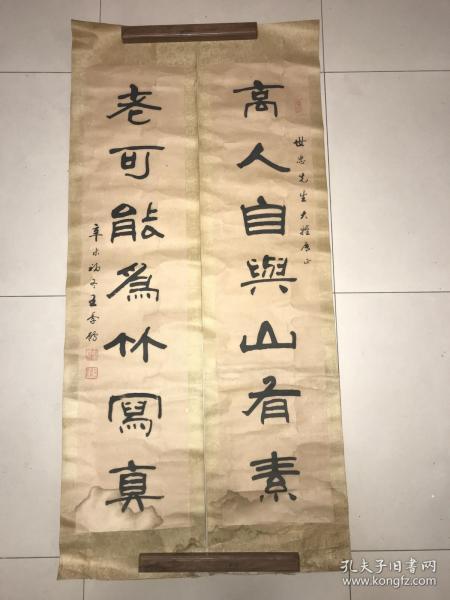 高人自與山有素
世忠先生大雅房正
老可能為竹寫真
辛未
孔夫子旧书网
www.kongfz.com